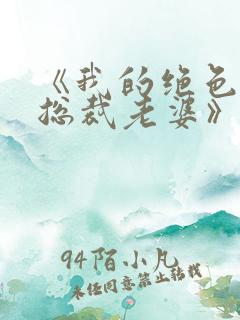 《我的绝色
总裁老婆》
94陌小凡
未经同意禁止转载